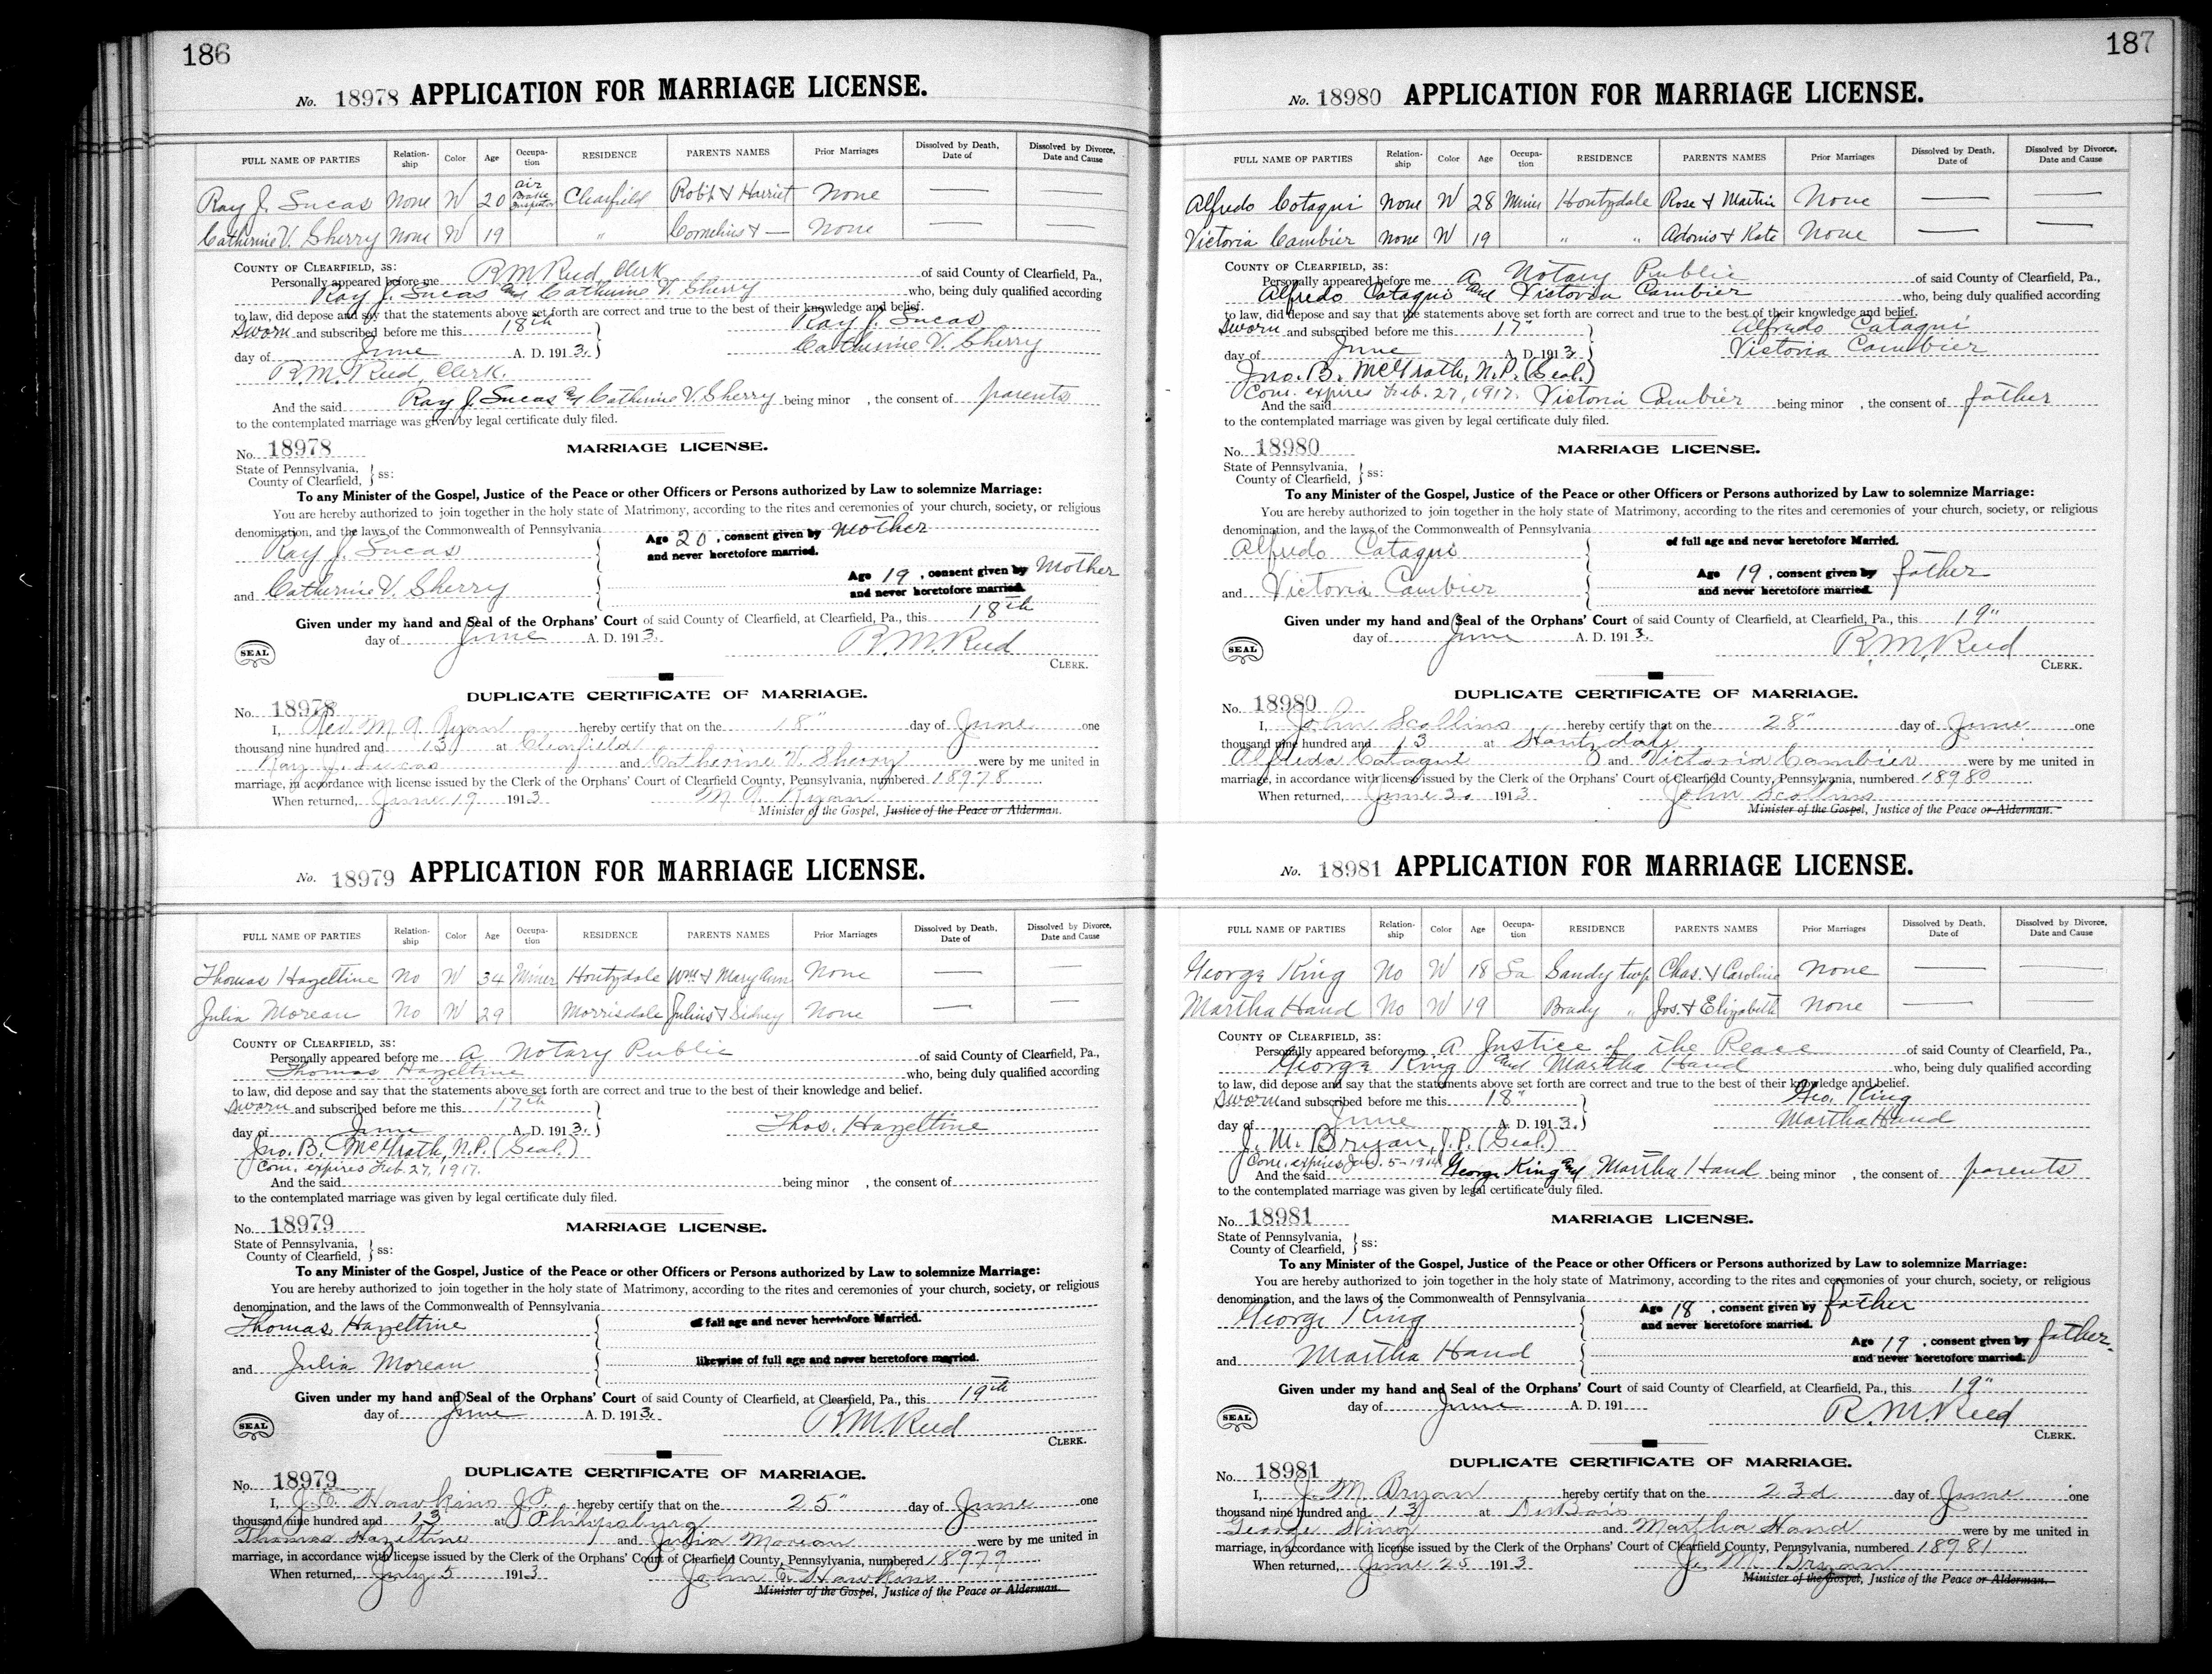 186
No. 18978 APPLICATION FOR MARRIAGE LICENSE.
FULL NAME OF PARTIES Relation-ship Color Age Occupa-tion RESIDENCE PARENTS NAMES Prior Marriages Dissolved by Death, Date of Dissolved by Divorce, Date and Cause
Ray J. Lucas None W 20 air Brake Inspector Clearfield Robt & Harriet None —
Catherine V. Sherry None W 19 " Cornelius & — None —
COUNTY OF CLEARFIELD, ss:
Personally appeared before me R.M. Reed, Clerk of said County of Clearfield, Pa.,
Ray J. Lucas and Catherine V. Sherry who, being duly qualified according
to law, did depose and say that the statements above set forth are correct and true to the best of their knowledge and belief.
Sworn and subscribed before me this 18th Ray J. Lucas
day of June A. D. 1913. Catherine V. Sherry
R.M. Reed, Clerk.
And the said Ray J. Lucas and Catherine V. Sherry being minor , the consent of parents
to the contemplated marriage was given by legal certificate duly filed.
No. 18978 MARRIAGE LICENSE.
State of Pennsylvania, County of Clearfield, } ss:
To any Minister of the Gospel, Justice of the Peace or other Officers or Persons authorized by Law to solemnize Marriage:
You are hereby authorized to join together in the holy state of Matrimony, according to the rites and ceremonies of your church, society, or religious
denomination, and the laws of the Commonwealth of Pennsylvania
Ray J. Lucas Age 20, consent given by Mother and never heretofore married.
and Catherine V. Sherry Age 19, consent given by Mother and never heretofore married.
Given under my hand and Seal of the Orphans' Court of said County of Clearfield, at Clearfield, Pa., this 18th
day of June A. D. 1913. R.M. Reed
SEAL CLERK.
DUPLICATE CERTIFICATE OF MARRIAGE.
No. 18978
I, Rev. M A Ryan hereby certify that on the 18" day of June one
thousand nine hundred and 13 at Clearfield
Ray J. Lucas and Catherine V. Sherry were by me united in
marriage, in accordance with license issued by the Clerk of the Orphans' Court of Clearfield County, Pennsylvania, numbered 18978
When returned, June 19 1913 M A Ryan
Minister of the Gospel, Justice of the Peace or Alderman.
No. 18979 APPLICATION FOR MARRIAGE LICENSE.
FULL NAME OF PARTIES Relation-ship Color Age Occupa-tion RESIDENCE PARENTS NAMES Prior Marriages Dissolved by Death, Date of Dissolved by Divorce, Date and Cause
Thomas Hazeltine No W 34 Miner Houtzdale Wm & Mary Ann None —
Julia Moreau No W 29 Morrisdale Julius & Sidney None —
COUNTY OF CLEARFIELD, ss:
Personally appeared before me a Notary Public of said County of Clearfield, Pa.,
Thomas Hazeltine who, being duly qualified according
to law, did depose and say that the statements above set forth are correct and true to the best of their knowledge and belief.
Sworn and subscribed before me this 17th
day of June A. D. 1913. Thos. Hazeltine
Jno. B. McGrath, N.P. (Seal.)
Com. expires Feb. 27, 1917.
And the said being minor , the consent of
to the contemplated marriage was given by legal certificate duly filed.
No. 18979 MARRIAGE LICENSE.
State of Pennsylvania, County of Clearfield, } ss:
To any Minister of the Gospel, Justice of the Peace or other Officers or Persons authorized by Law to solemnize Marriage:
You are hereby authorized to join together in the holy state of Matrimony, according to the rites and ceremonies of your church, society, or religious
denomination, and the laws of the Commonwealth of Pennsylvania
Thomas Hazeltine of full age and never heretofore Married.
and Julia Moreau likewise of full age and never heretofore married.
Given under my hand and Seal of the Orphans' Court of said County of Clearfield, at Clearfield, Pa., this 19th
day of June A. D. 1913. R.M. Reed
SEAL CLERK.
DUPLICATE CERTIFICATE OF MARRIAGE.
No. 18979
I, J. E. Hawkins J.P. hereby certify that on the 25" day of June one
thousand nine hundred and 13 at Philipsburg
Thomas Hazeltine and Julia Moreau were by me united in
marriage, in accordance with license issued by the Clerk of the Orphans' Court of Clearfield County, Pennsylvania, numbered 18979
When returned, July 5 1913 John E. Hawkins
Minister of the Gospel, Justice of the Peace or Alderman.
187
No. 18980 APPLICATION FOR MARRIAGE LICENSE.
FULL NAME OF PARTIES Relation-ship Color Age Occupa-tion RESIDENCE PARENTS NAMES Prior Marriages Dissolved by Death, Date of Dissolved by Divorce, Date and Cause
Alfredo Cotaqui None W 28 Miner Houtzdale Rose & Martin None —
Victoria Cambier None W 19 " " Adonis & Kate None —
COUNTY OF CLEARFIELD, ss:
Personally appeared before me a Notary Public of said County of Clearfield, Pa.,
Alfredo Cataqui and Victoria Cambier who, being duly qualified according
to law, did depose and say that the statements above set forth are correct and true to the best of their knowledge and belief.
Sworn and subscribed before me this 17" Alfredo Cataqui
day of June A. D. 1913 Victoria Cambier
Jno. B. McGrath, N.P. (Seal.)
Com. expires Feb. 27, 1917.
And the said Victoria Cambier being minor , the consent of father
to the contemplated marriage was given by legal certificate duly filed.
No. 18980 MARRIAGE LICENSE.
State of Pennsylvania, County of Clearfield, } ss:
To any Minister of the Gospel, Justice of the Peace or other Officers or Persons authorized by Law to solemnize Marriage:
You are hereby authorized to join together in the holy state of Matrimony, according to the rites and ceremonies of your church, society, or religious
denomination, and the laws of the Commonwealth of Pennsylvania
Alfredo Cataqui of full age and never heretofore Married.
and Victoria Cambier Age 19, consent given by father and never heretofore married.
Given under my hand and Seal of the Orphans' Court of said County of Clearfield, at Clearfield, Pa., this 19"
day of June A. D. 1913. R.M. Reed
SEAL CLERK.
DUPLICATE CERTIFICATE OF MARRIAGE.
No. 18980
I, John Scollins hereby certify that on the 28" day of June one
thousand nine hundred and 13 at Houtzdale
Alfredo Cataqui and Victoria Cambier were by me united in
marriage, in accordance with license issued by the Clerk of the Orphans' Court of Clearfield County, Pennsylvania, numbered 18980
When returned, June 30 1913 John Scollins
Minister of the Gospel, Justice of the Peace or Alderman.
No. 18981 APPLICATION FOR MARRIAGE LICENSE.
FULL NAME OF PARTIES Relation-ship Color Age Occupa-tion RESIDENCE PARENTS NAMES Prior Marriages Dissolved by Death, Date of Dissolved by Divorce, Date and Cause
George King No W 18 La Sandy twp Chas. & Caroline None —
Martha Hand No W 19 Brady " Jos. & Elizabeth None —
COUNTY OF CLEARFIELD, ss:
Personally appeared before me a Justice of the Peace of said County of Clearfield, Pa.,
George King and Martha Hand who, being duly qualified according
to law, did depose and say that the statements above set forth are correct and true to the best of their knowledge and belief.
Sworn and subscribed before me this 18" Geo. King
day of June A. D. 1913. Martha Hand
J. M. Bryan, J.P. (Seal.)
Com. expires Jan. 5-1914
And the said George King and Martha Hand being minor , the consent of parents
to the contemplated marriage was given by legal certificate duly filed.
No. 18981 MARRIAGE LICENSE.
State of Pennsylvania, County of Clearfield, } ss:
To any Minister of the Gospel, Justice of the Peace or other Officers or Persons authorized by Law to solemnize Marriage:
You are hereby authorized to join together in the holy state of Matrimony, according to the rites and ceremonies of your church, society, or religious
denomination, and the laws of the Commonwealth of Pennsylvania
George King Age 18, consent given by father and never heretofore married.
and Martha Hand Age 19, consent given by father and never heretofore married.
Given under my hand and Seal of the Orphans' Court of said County of Clearfield, at Clearfield, Pa., this 19"
day of June A. D. 191 R.M. Reed
SEAL CLERK.
DUPLICATE CERTIFICATE OF MARRIAGE.
No. 18981
I, J. M. Bryan hereby certify that on the 23d day of June one
thousand nine hundred and 13 at DuBois
George King and Martha Hand were by me united in
marriage, in accordance with license issued by the Clerk of the Orphans' Court of Clearfield County, Pennsylvania, numbered 18981
When returned, June 25 1913 J. M. Bryan
Minister of the Gospel, Justice of the Peace or Alderman.